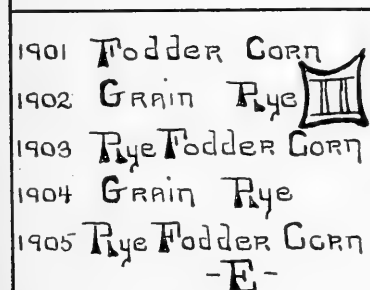 1901 Fodder Corn
1902 Grain Rye III
1903 Rye Fodder Corn
1904 Grain Rye
1905 Rye Fodder Corn
-E-